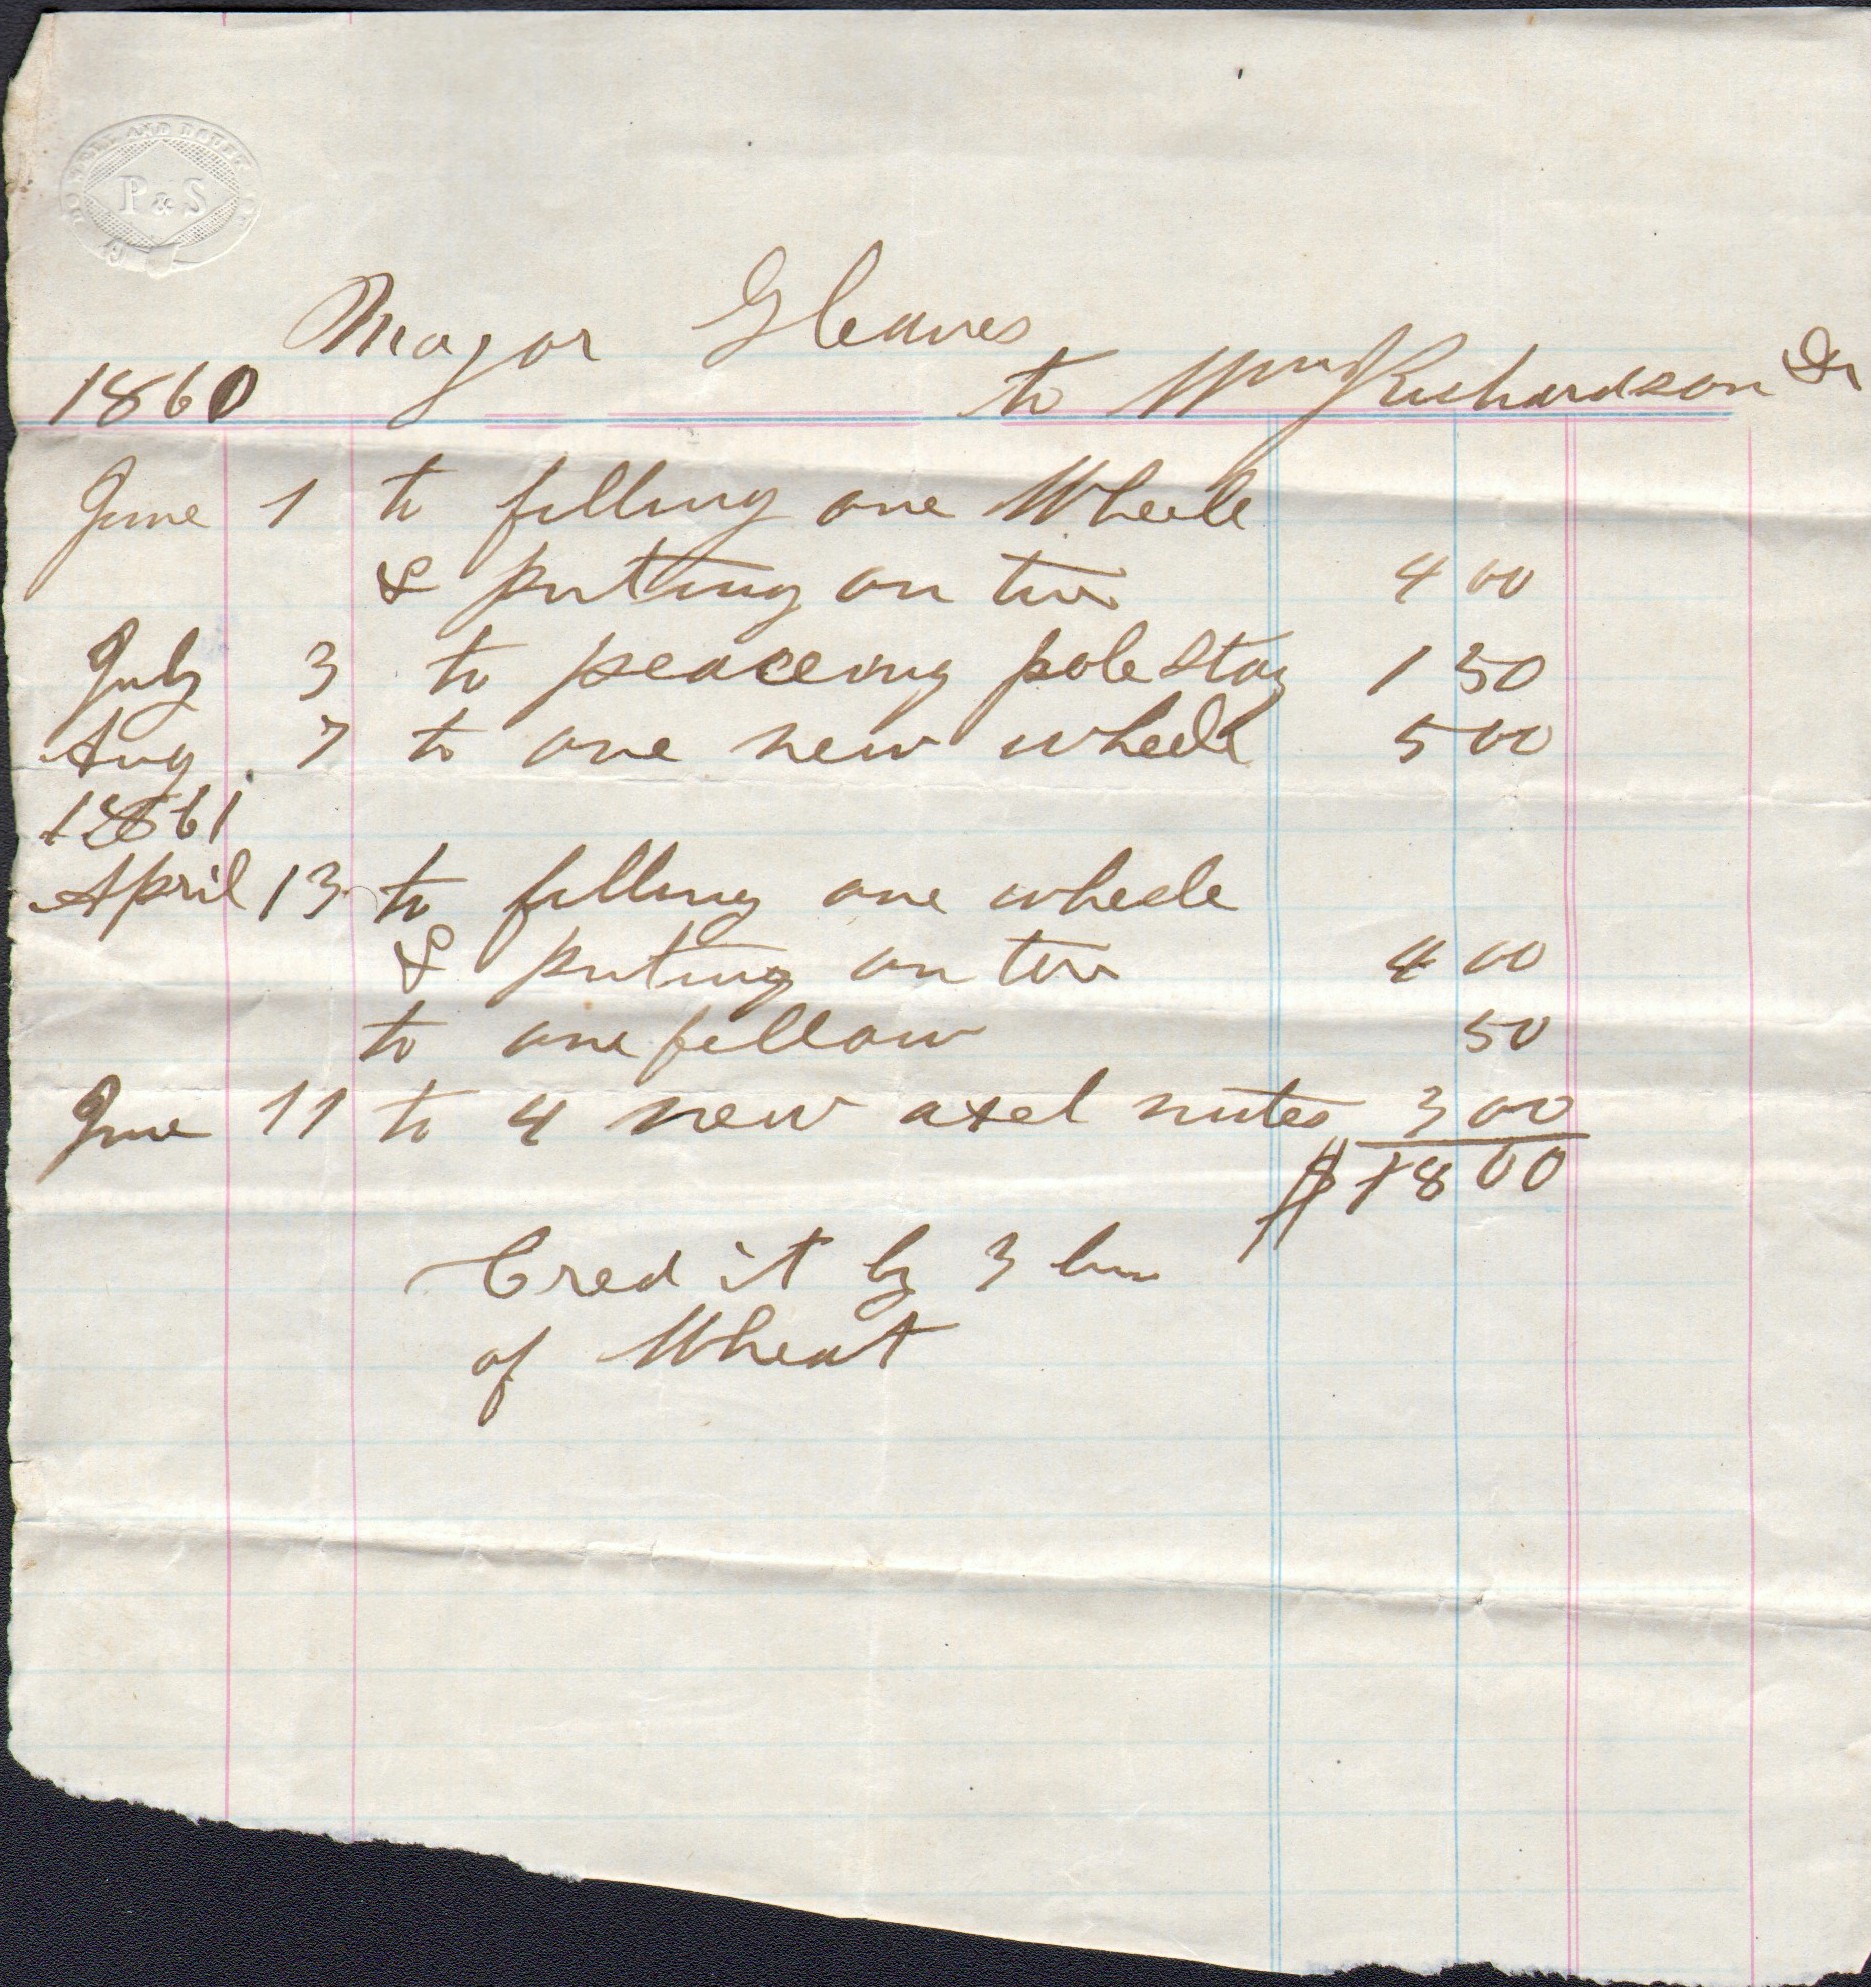 P & S
Major Gleaves
1860 to Wm Richardson Dr
June 1 to filling one Wheele
& putting on tire 4 00
July 3 to peaceing pole stay 1 50
Aug. 7 to one new wheele 5 00
1861
April 13 to filling one wheele
& puting on tire 4 00
to one fellow 50
June 11 to 4 new axel nutes 3 00
$ 18 00
Credit by 3 bu
of Wheat